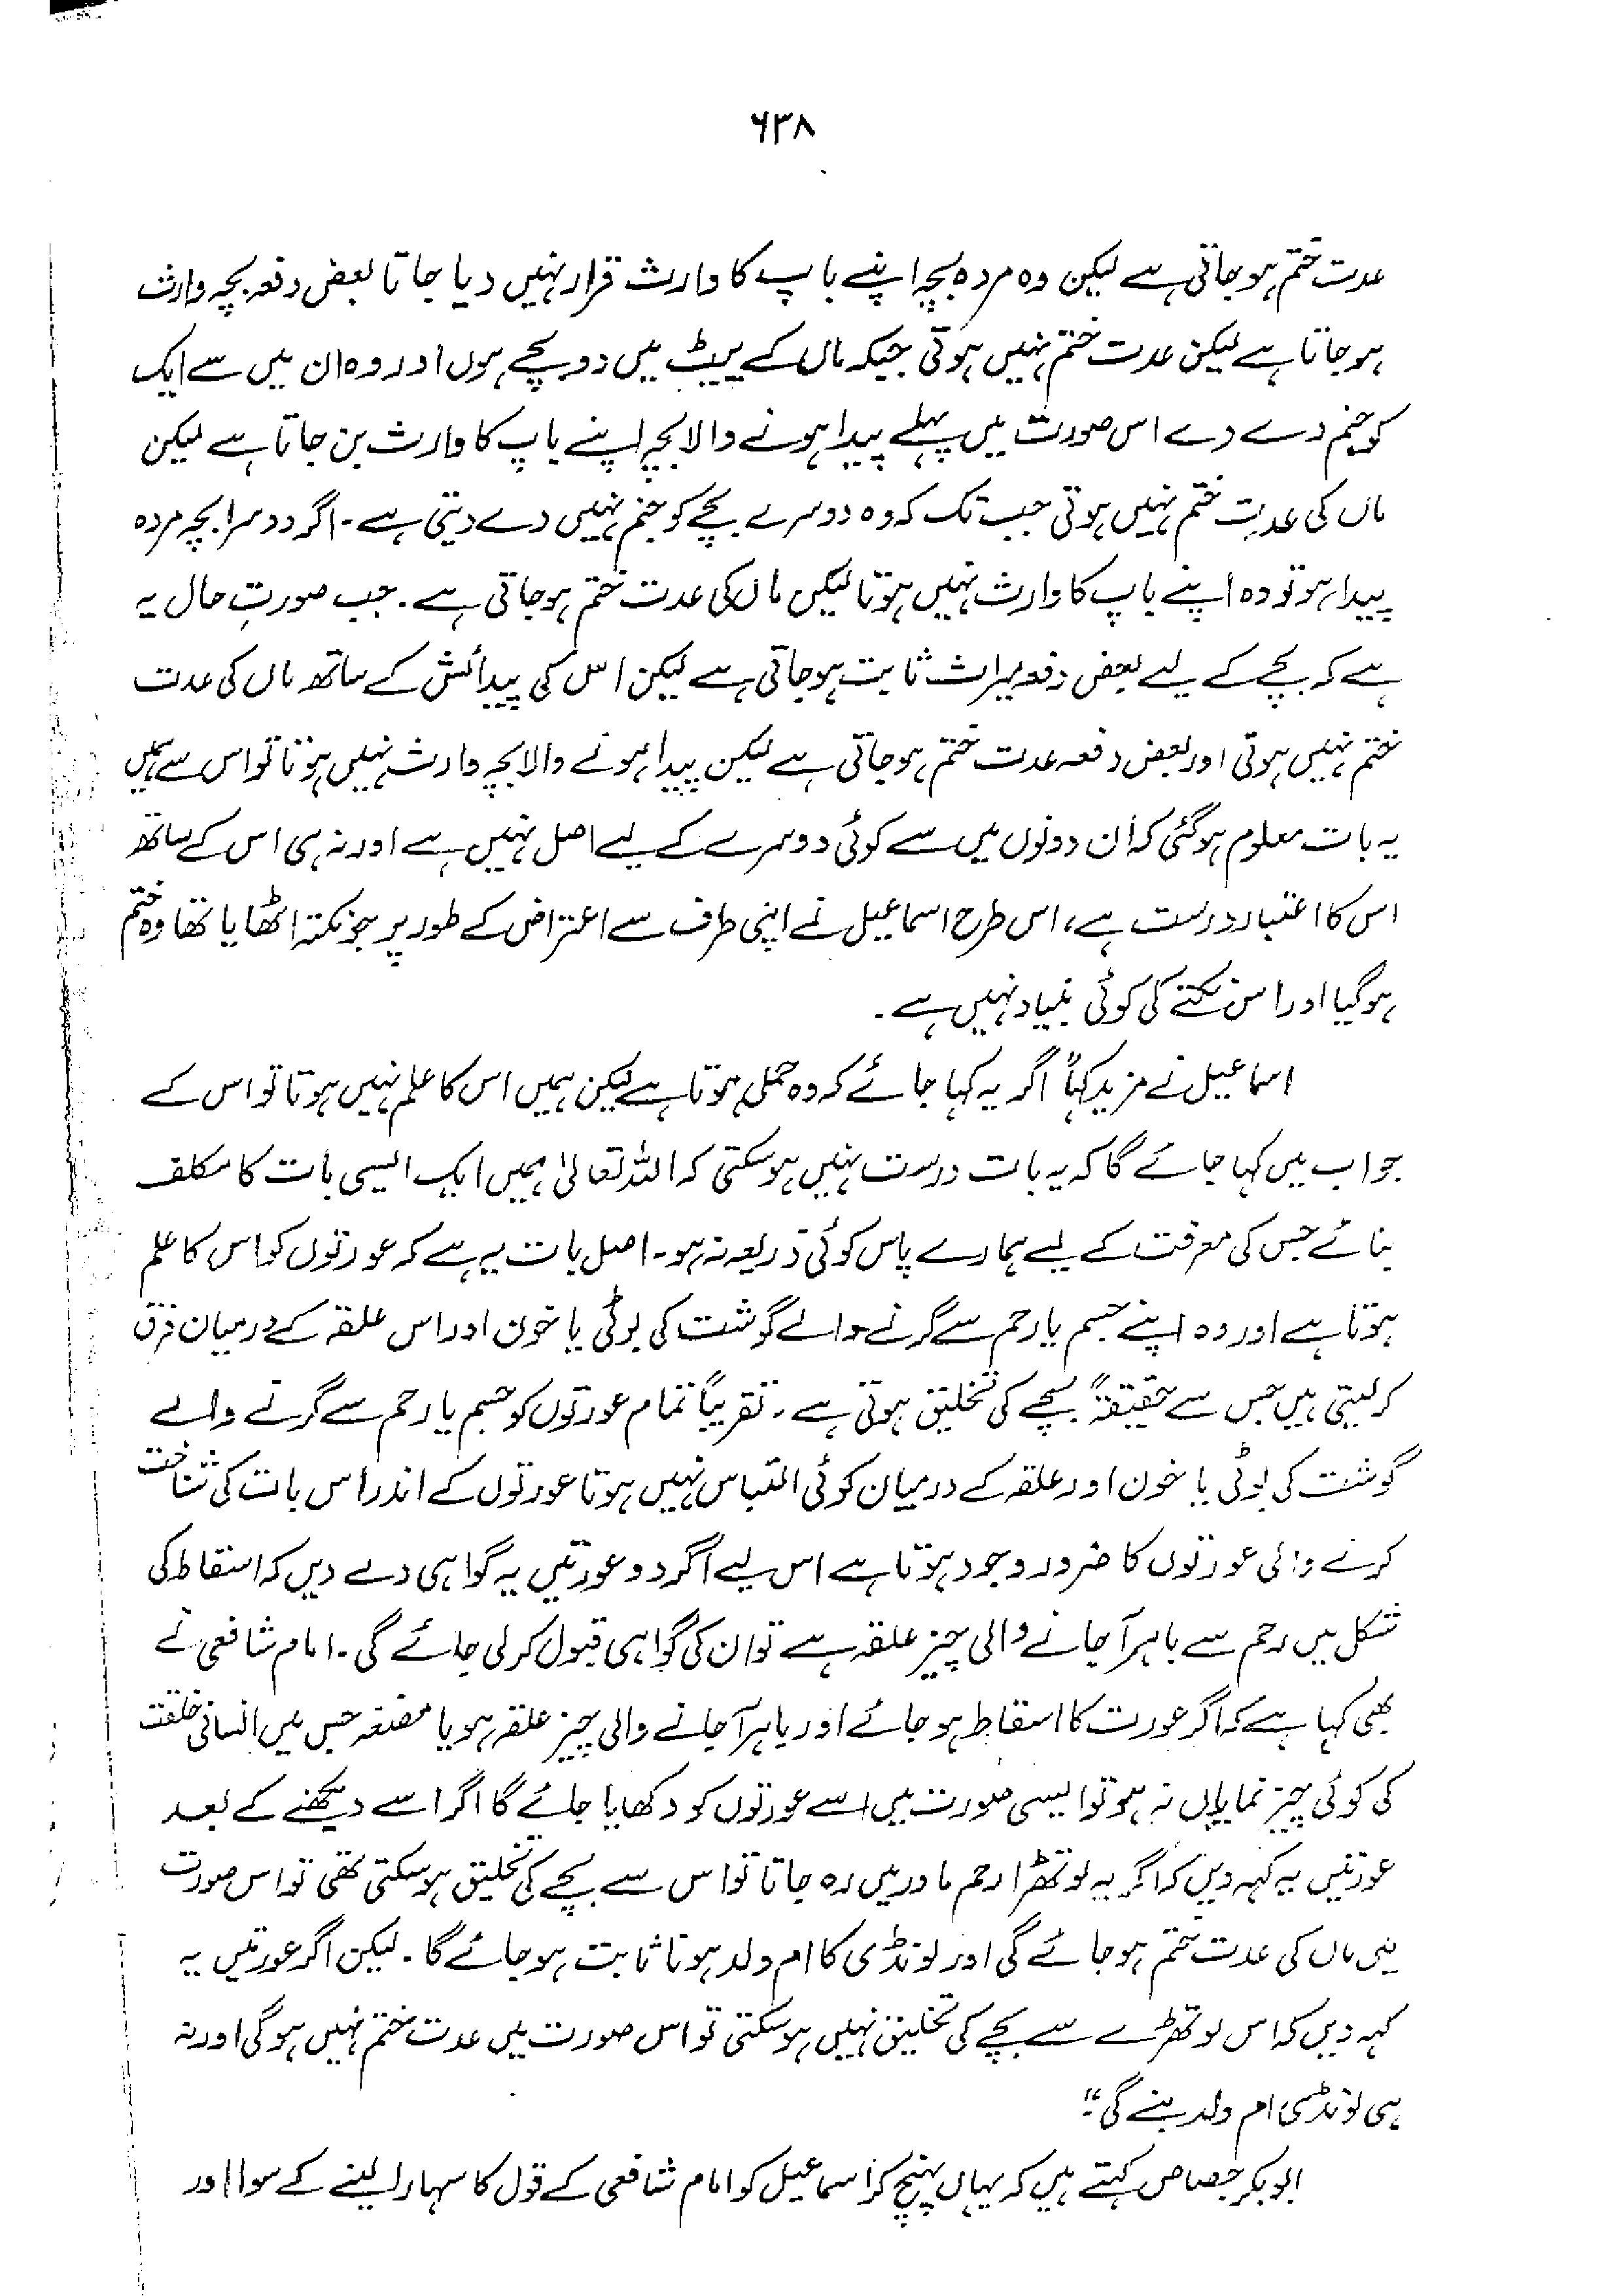 ۶۳۸
عدت ختم ہو جاتی ہے لیکن وہ مردہ بچہ اپنے باپ کا وارث قرار نہیں دیا جاتا بعض دفعہ بچہ وارث
ہو جاتا ہے لیکن عدت ختم نہیں ہوتی جبکہ ماں کے پیٹ میں دو بچے ہوں اور وہ ان میں سے ایک
کو جنم دے دے اس صورت میں پہلے پیدا ہونے والا بچہ اپنے باپ کا وارث بن جاتا ہے لیکن
ماں کی عدت ختم نہیں ہوتی جب تک کہ وہ دوسرے بچے کو جنم نہیں دے دیتی ہے۔ اگر دوسرا بچہ مردہ
پیدا ہو تو وہ اپنے باپ کا وارث نہیں ہوتا لیکن ماں کی عدت ختم ہو جاتی ہے۔ جب صورتِ حال یہ
ہے کہ بچے کے لیے بعض دفعہ میراث ثابت ہو جاتی ہے لیکن اس کی پیدائش کے ساتھ ماں کی عدت
ختم نہیں ہوتی اور بعض دفعہ عدت ختم ہو جاتی ہے لیکن پیدا ہونے والا بچہ وارث نہیں ہوتا تو اس سے ہمیں
یہ بات معلوم ہو گئی کہ ان دونوں میں سے کوئی دوسرے کے لیے اصل نہیں ہے اور نہ ہی اس کے ساتھ
اس کا اعتبار درست ہے، اس طرح اسماعیل نے اپنی طرف سے اعتراض کے طور پر جو نکتہ اٹھایا تھا وہ ختم
ہو گیا اور اس نکتے کی کوئی بنیاد نہیں ہے۔
اسماعیل نے مزید کہا" اگر یہ کہا جائے کہ وہ حمل ہوتا ہے لیکن ہمیں اس کا علم نہیں ہوتا تو اس کے
جواب میں کہا جائے گا کہ یہ بات درست نہیں ہو سکتی کہ اللہ تعالیٰ ہمیں ایک ایسی بات کا مکلف
بنائے جس کی معرفت کے لیے ہمارے پاس کوئی ذریعہ نہ ہو۔ اصل بات یہ ہے کہ عورتوں کو اس کا علم
ہوتا ہے اور وہ اپنے جسم یا رحم سے گرنے والے گوشت کی بوٹی یا خون اور اس علقہ کے درمیان فرق
کر لیتی ہیں جس سے حقیقۃً بچے کی تخلیق ہوتی ہے۔ تقریباً تمام عورتوں کو جسم یا رحم سے گرنے والے
گوشت کی بوٹی یا خون اور علقہ کے درمیان کوئی التباس نہیں ہوتا عورتوں کے اندر اس بات کی شناخت
کرنے والی عورتوں کا ضرور وجود ہوتا ہے اس لیے اگر دو عورتیں یہ گواہی دے دیں کہ اسقاط کی
شکل میں رحم سے باہر آ جانے والی چیز علقہ ہے تو ان کی گواہی قبول کر لی جائے گی۔ امام شافعی نے
بھی کہا ہے کہ اگر عورت کا اسقاط ہو جائے اور باہر آ جانے والی چیز علقہ ہو یا مضغہ جس میں انسانی خلقت
کی کوئی چیز نمایاں نہ ہو تو ایسی صورت میں اسے عورتوں کو دکھایا جائے گا اگر اسے دیکھنے کے بعد
عورتیں یہ کہہ دیں کہ اگر یہ لوتھڑا رحم مادر میں رہ جاتا تو اس سے بچے کی تخلیق ہو سکتی تھی تو اس صورت
میں ماں کی عدت ختم ہو جائے گی اور لونڈی کا ام ولد ہونا ثابت ہو جائے گا۔ لیکن اگر عورتیں یہ
کہہ دیں کہ اس لوتھڑے سے بچے کی تخلیق نہیں ہو سکتی تو اس صورت میں عدت ختم نہیں ہوگی اور نہ
ہی لونڈی ام ولد بنے گی"۔
ابوبکر جصاص کہتے ہیں کہ یہاں پہنچ کر اسماعیل کو امام شافعی کے قول کا سہارا لینے کے سوا اور